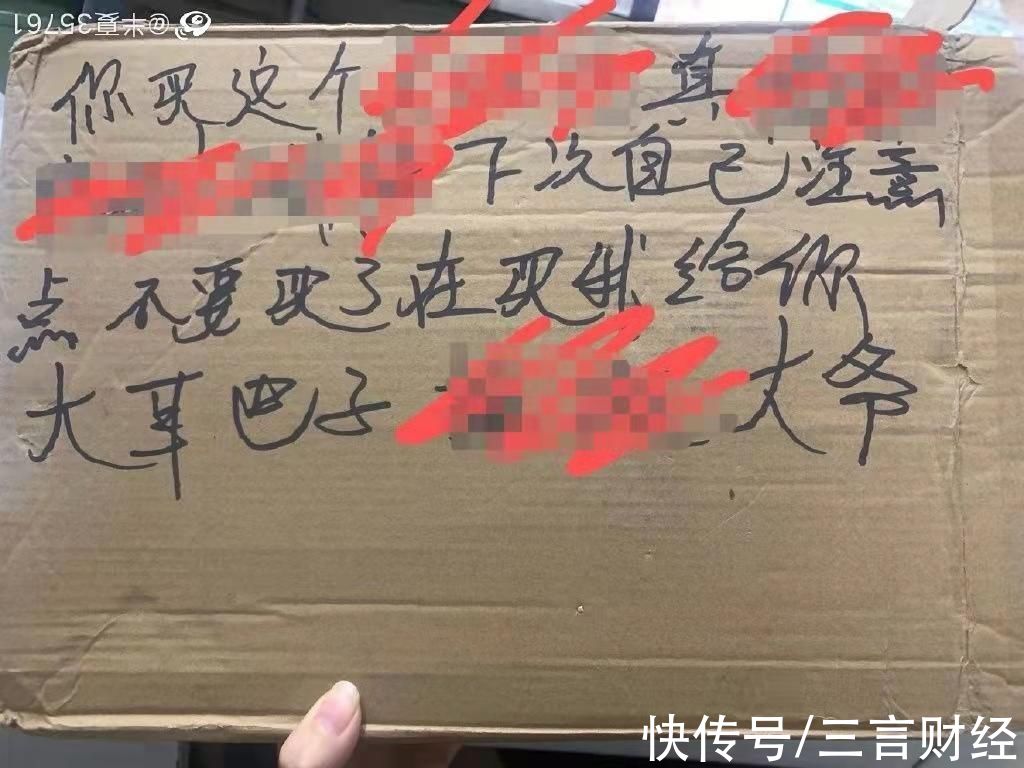 @未夏35761
你买这个 真
下次自己注意
点不要买了在买我给你
大耳巴子 大爷
快传号/三言财经